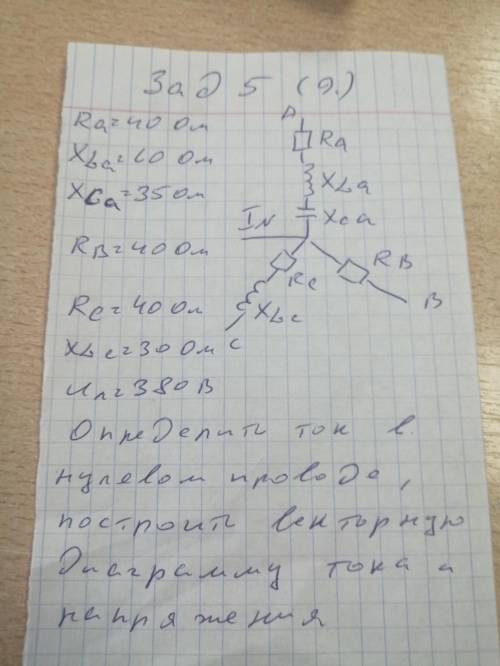 Зад 5 (9.)
A
Ra=40 Ом
Ra
XLa=60 Ом
XLa
XCa=35 Ом
XCa
IN
RB=40 Ом
RB
RC
B
RC=40 Ом
XLC
XLC=30 Ом
C
Uл=380 В
Определить ток в
нулевом проводе,
построить векторную
диаграмму тока и
напряжения